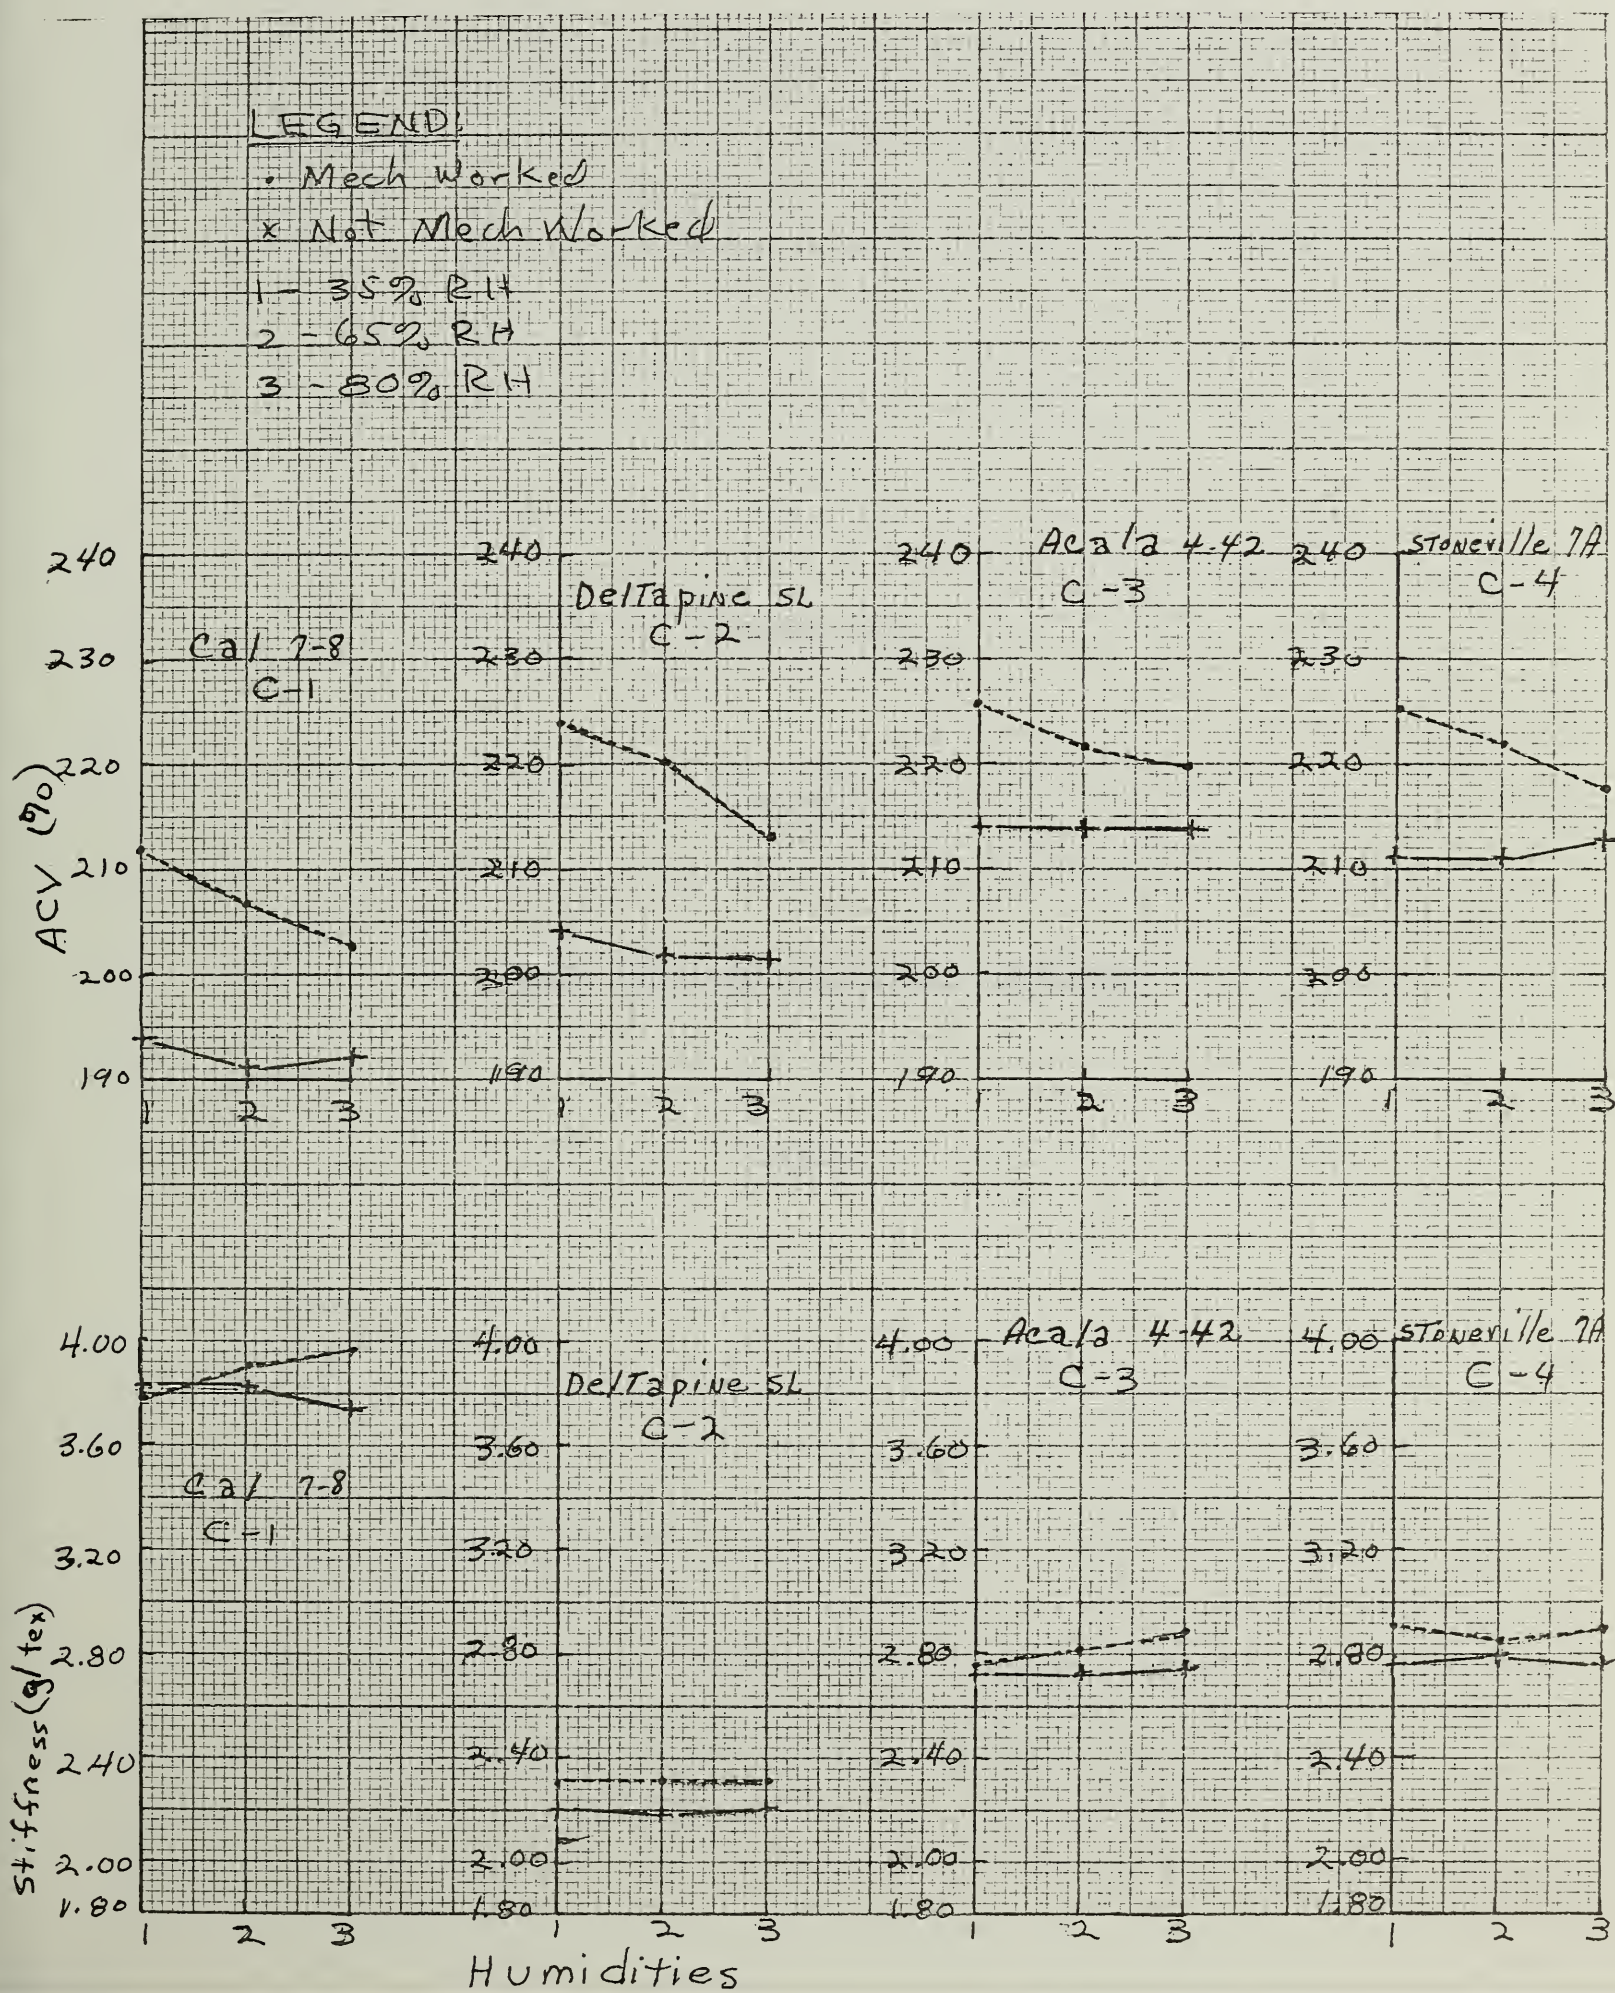 LEGEND:
• Mech Worked
x Not Mech Worked
1 - 35% RH
2 - 65% RH
3 - 80% RH
ACV (%)
240
230
220
210
200
190
Cal 7-8
C-1
1 2 3
240
230
220
210
200
190
Deltapine SL
C-2
1 2 3
240
230
220
210
200
190
Acala 4-42
C-3
1 2 3
240
230
220
210
200
190
Stoneville 7A
C-4
1 2 3
Stiffness (g/tex)
4.00
3.60
3.20
2.80
2.40
2.00
1.80
Cal 7-8
C-1
1 2 3
4.00
3.60
3.20
2.80
2.40
2.00
1.80
Deltapine SL
C-2
1 2 3
4.00
3.60
3.20
2.80
2.40
2.00
1.80
Acala 4-42
C-3
1 2 3
4.00
3.60
3.20
2.80
2.40
2.00
1.80
Stoneville 7A
C-4
1 2 3
Humidities